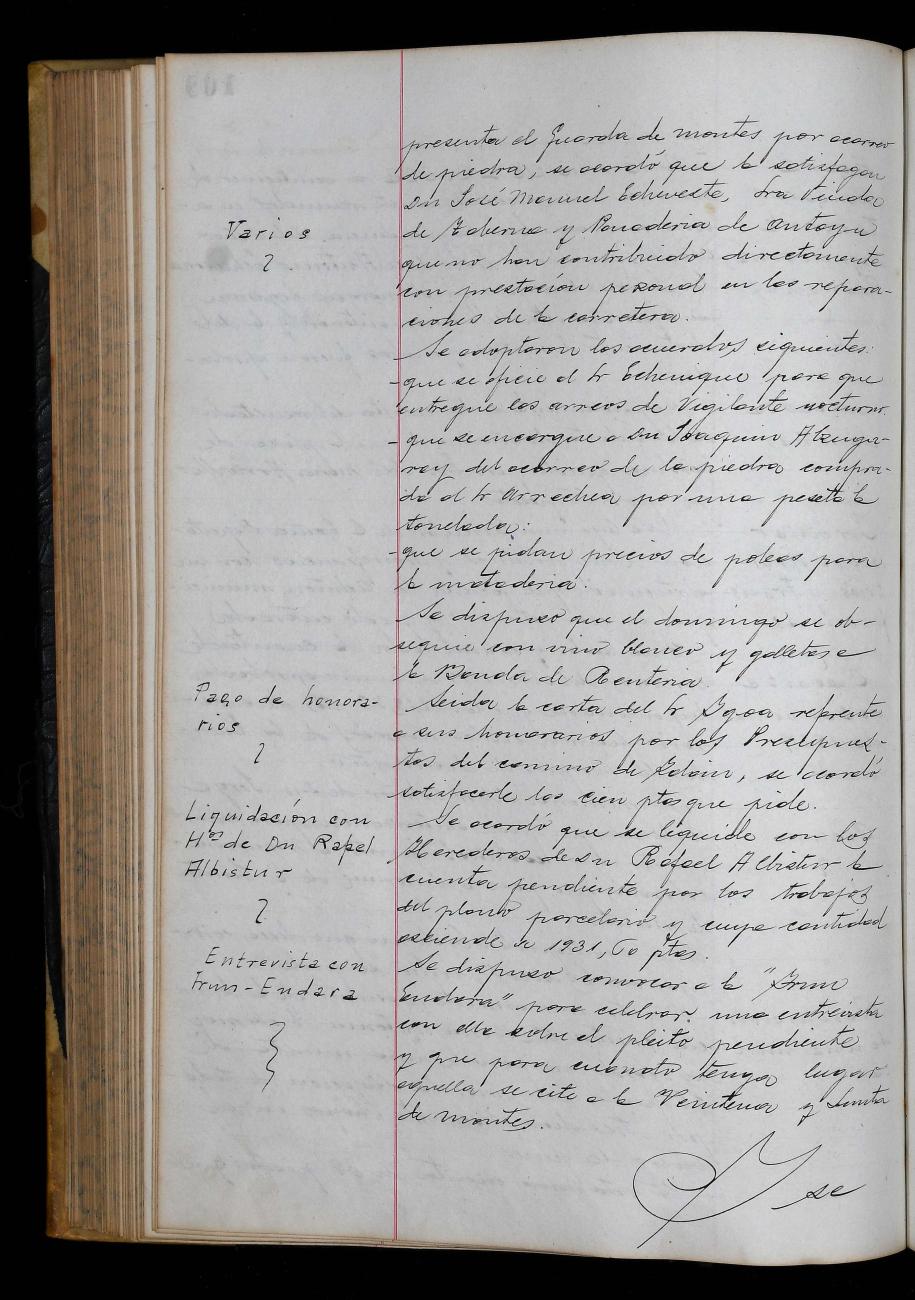 presenta el Guarda de montes por acarreo
de piedra, se acordó que la satisfagan
Dn José Manuel Echeveste, Sra Viuda
de Taberna y Panaderia de
que no han contribuido directamente
con prestación personal en las repara-
ciones de la carretera.
Varios
Se adoptaron los acuerdos siguientes:
-que se oficie al Sr Echenique para que
entregue los arreos de Vigilante nocturno.
-que se encargue a Dn Joaquin Alzuga-
ray del acarreo de la piedra compra-
da al Sr Arrechea por una peseta la
tonelada:
-que se pidan precios de poleas para
la mataderia:
Se dispuso que el domingo se ob-
sequie con vino blanco y galletas a
la Banda de Renteria.
Pago de honora-
rios
Leida la carta del Sr Ygoa referente
a sus honorarios por los Presupues-
tos del camino de Zdoin, se acordó
satisfacerle las cien ptas que pide.
Liquidación con
Hros de Dn Rafael
Albistur
Se acordó que se liquide con los
Herederos de Dn Rafael Albistur la
cuenta pendiente por los trabajos
del plano parcelario y cuya cantidad
asciende a 1931,60 ptas.
Entrevista con
Irun-Endara
Se dispuso convocar a la "Irun
Endara" para celebrar una entrevista
con ella sobre el pleito pendiente
y que para cuando tenga lugar
aquella se cite a la Veintena y Junta
de montes.
Y se